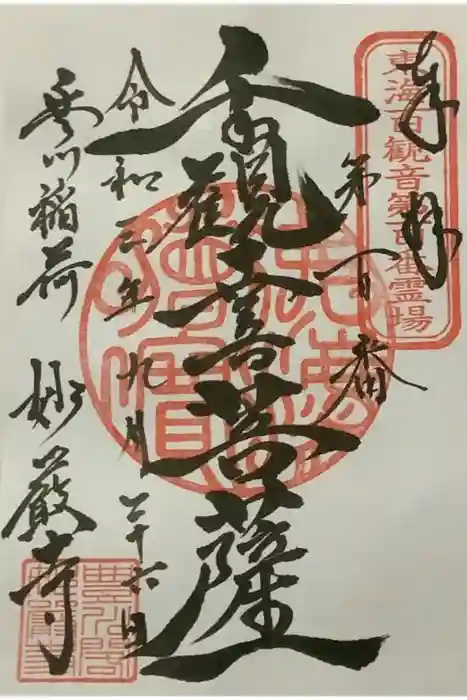 奉拝
東海百観音第百番霊場
第百番
千手觀音菩薩
令和三年九月二十六日
豊川稲荷 妙厳寺